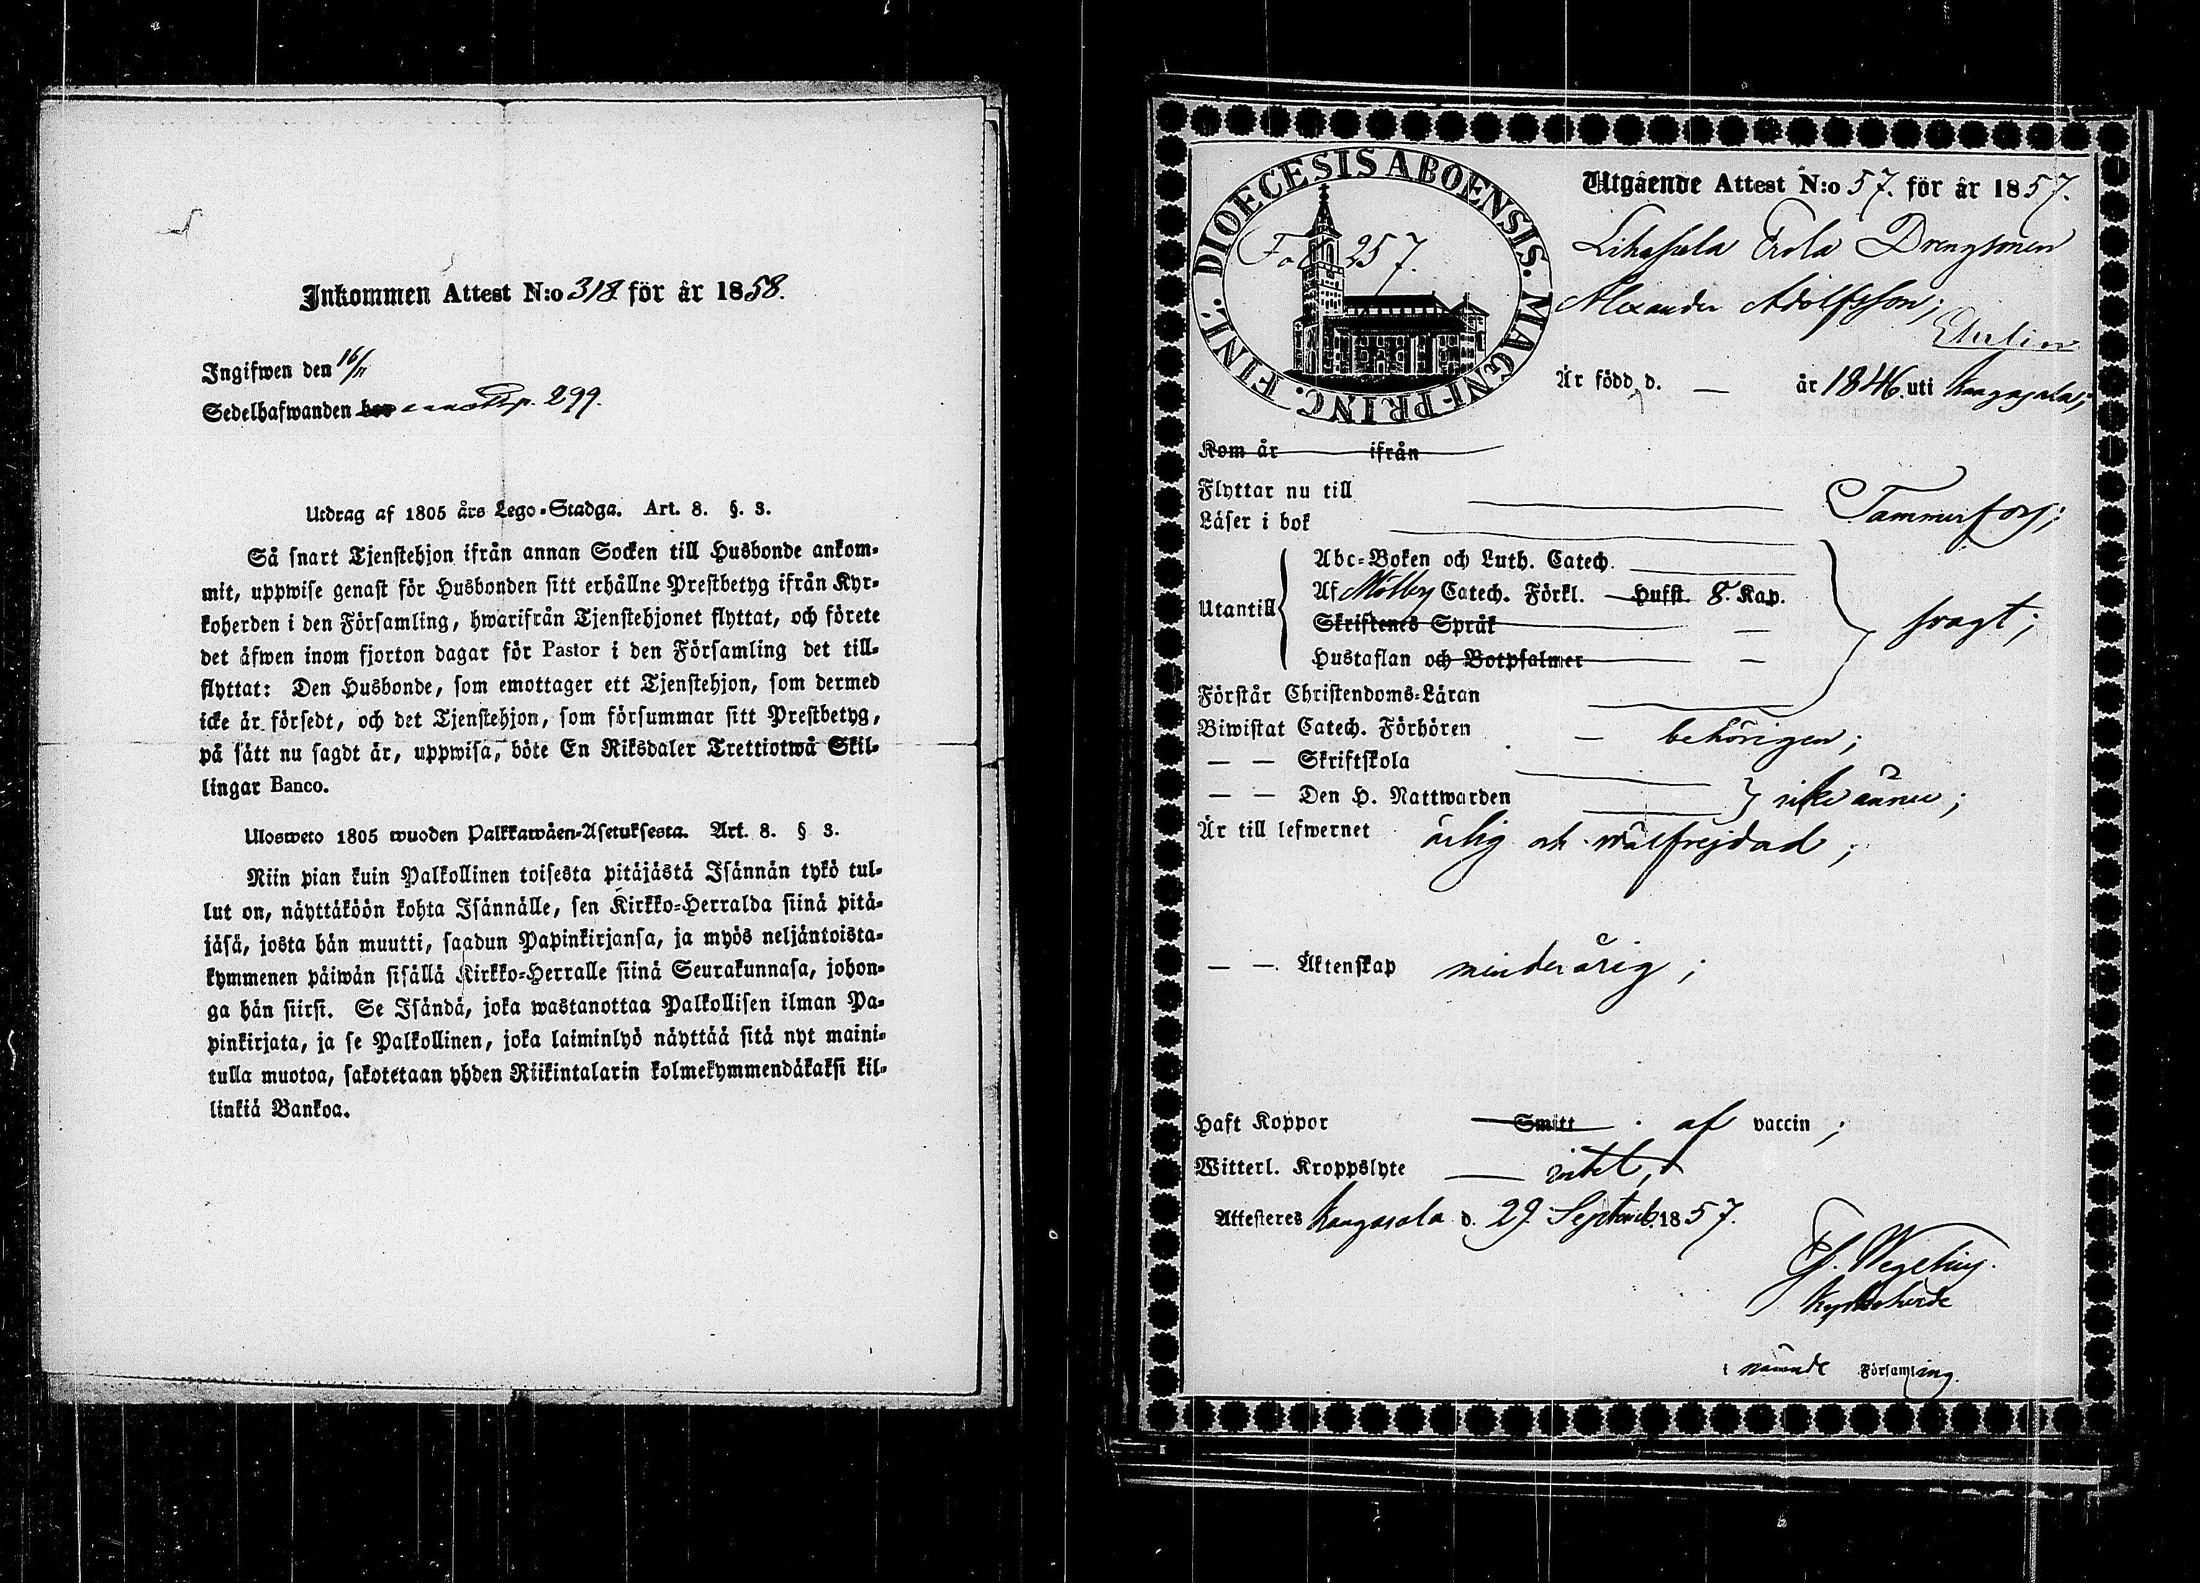 Inkommen Attest N:o 318 för år 1858.
Ingifwen den 16/11
Sedelhafwanden p. 299.
Utdrag af 1805 års Lego-Stadga. Art. 8. §. 3.
Så snart Tjenstehjon ifrån annan Socken till Husbonde ankom-
mit, uppwise genast för Husbonden sitt erhållne Prestbetyg ifrån Kyr-
koherden i den Församling, hwarifrån Tjenstehjonet flyttat, och förete
det äfwen inom fjorton dagar för Pastor i den Församling det till-
flyttat: Den Husbonde, som emottager ett Tjenstehjon, som dermed
icke är försedt, och det Tjenstehjon, som försummar sitt Prestbetyg,
på sätt nu sagdt är, uppwisa, böte En Riksdaler Trettiotwå Skil-
lingar Banco.
Ulosweto 1805 wuoden Palkkawäen-Asetuksesta. Art. 8. § 3.
Niin pian kuin Palkollinen toisesta pitäjästä Isännän tykö tul-
lut on, näyttäköön kohta Isännälle, sen Kirkko-Herralda siinä pitä-
jäsä, josta hän muutti, saadun Papinkirjansa, ja myös neljäntoista-
kymmenen päiwän sisällä Kirkko-Herralle siinä Seurakunnasa, johon-
ga hän siirsi. Se Isändä, joka wastanottaa Palkollisen ilman Pa-
pinkirjata, ja se Palkollinen, joka laiminlyö näyttää sitä nyt maini-
tulla muotoa, sakotetaan yhden Riikintalarin kolmekymmendäkaksi kil-
linkiä Bankoa.
DIOECESIS ABOENSIS. MAGNI PRINC. FINL.
Fol 257.
Utgående Attest N:o 57. för år 1857.
Likasala Erola Drengsonen
Alexander Adolfsson;
Är född, d. — år 1846. uti Kangasala;
Kom år ifrån
Flyttar nu till Tammerfors;
Läser i bok
Abc-Boken och Luth. Catech.
Utantill Af Möllers Catech. Förkl. Husst. 8. Kap.
Skriftenes Språk —
Hustaflan och Botpsalmer —
svagt;
Förstår Christendoms-Läran
Biwistat Catech. Förhören — behörigen;
— — Skriftskola
— — Den H. Nattwarden icke ännu;
Är till lefwernet ärlig och wälfrejdad;
— — Äktenskap minderårig;
Haft Koppor Smitt af vaccin;
Witterl. Kroppslyte intet,
Attesteres Kangasala d. 29 Septemb. 1857.
Wegelius.
Kyrkoherde
i nämnde Församling.